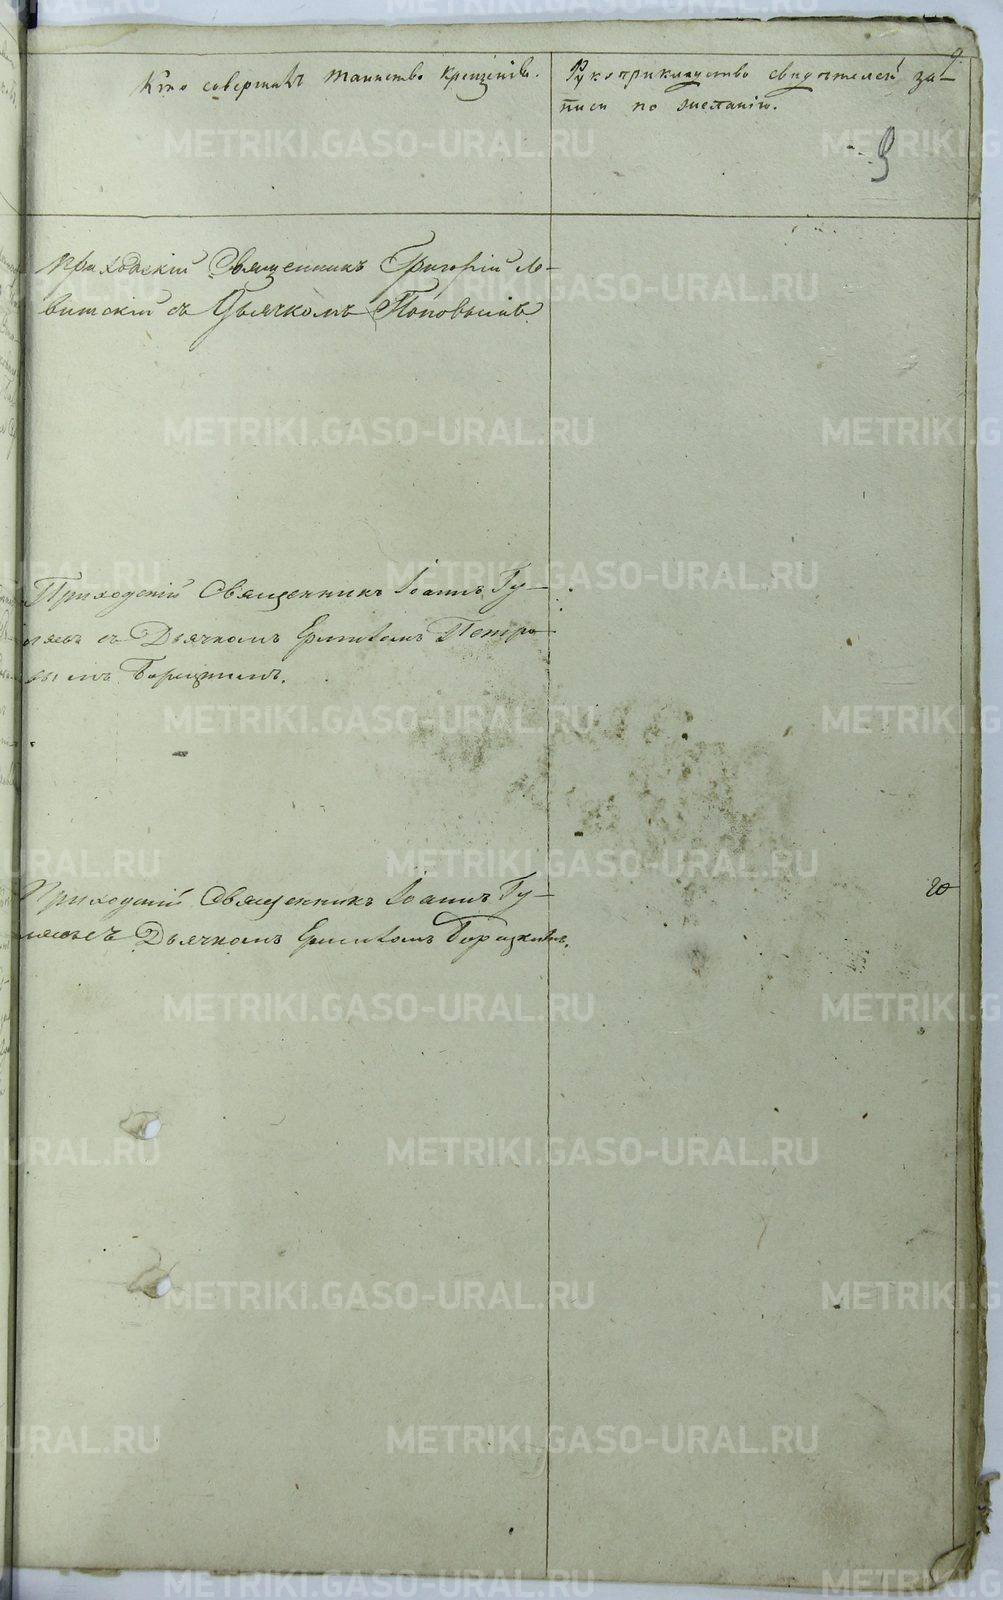 9
Кто совершалъ таинство крещенія.
Рукоприкладство свидѣтелей за-
писи по желанію.
9
приходскій Священникъ Григорій Ле-
витскій съ Дьячкомъ Поповымъ
Приходскій Священникъ Іоаннъ Гу-
ляевъ съ Дьячкомъ Петро
вымъ
Приходскій Священникъ Іоаннъ Гу-
ляевъ съ Дьячкомъ
20
METRIKI.GASO-URAL.RU